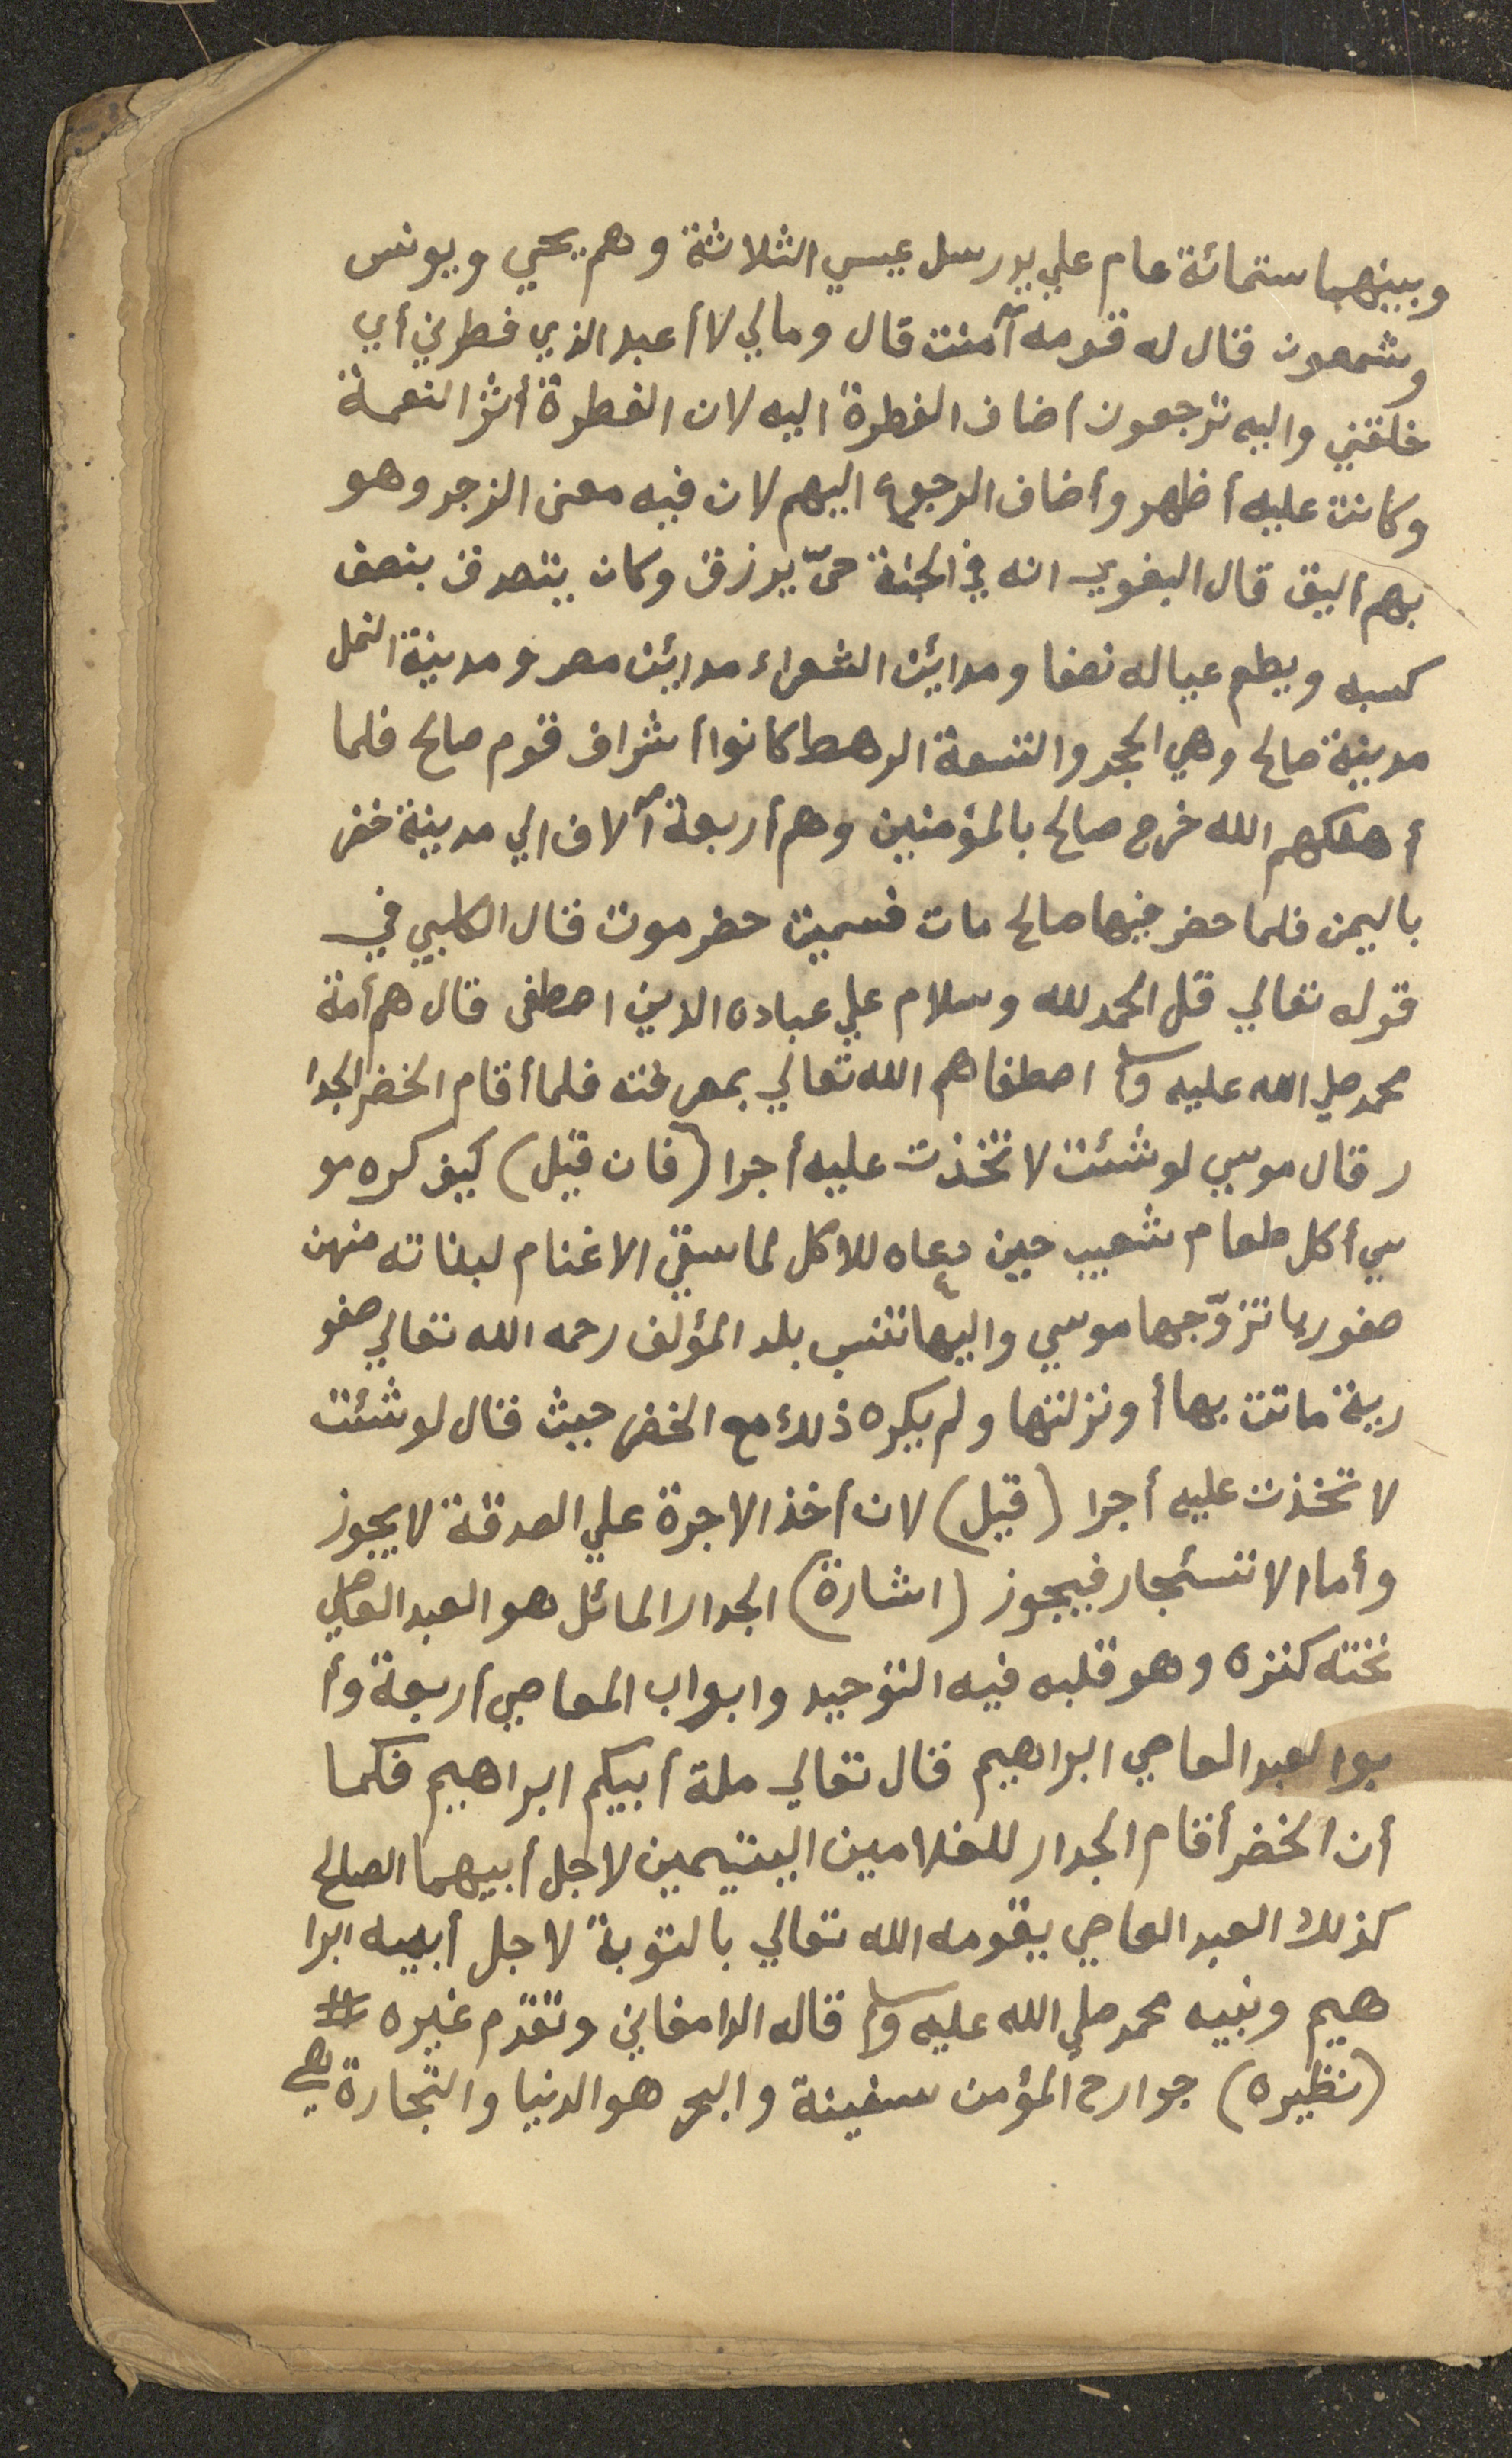 وبينهما ستمائة عام علي يد رسل عيسي الثلاثة وهم يحيي ويونس
وشمعون فقال له قومه آمنت قال ومالي لا أعبد الذي فطرني أي
خلقني واليه ترجعون أضاف الفطرة اليه لان الفطرة أثر النعمة
وكانت عليه أظهر وأضاف الرجوع اليهم لان فيه معنى الزجر وهو
بهم أليق قال البغوي انه في الجنة حيّ يرزق وكان يتصدق بنصف
كسبه ويطعم عياله نصفا ومدائن الشعراء مدائن مصر ومدينة النمل
مدينة صالح وهي الحجر والتسعة الرهط كانوا أشراف قوم صالح فلما
أهلكهم الله خرج صالح بالمؤمنين وهم أربعة آلاف الي مدينة خضر
باليمن فلما حضر فيها صالح مات فسميت حضرموت قال الكلبي في
قوله تعالي قل الحمد لله وسلام علي عباده الذين اصطفى قال هم أمة
محمد صلي الله عليه وسلم اصطفاهم الله تعالي بمعرفته فلما أقام الخضر الجدا
ر قال موسي لو شئت لاتخذت عليه أجرا (فان قيل) كيف كره مو
سي أكل طعام شعيب حين دعاه للاكل لما سقي الاغنام لبناته منهن
صفوريا تزوّجها موسي واليها تنسب بلد المؤلف رحمه الله تعالي صفو
رية ماتت بها أو نزلتها ولم يكره ذلك مع الخضر حيث قال لو شئت
لاتخذت عليه أجرا (قيل) لان أخذ الاجرة علي الصدقة لا يجوز
وأما الاستئجار فيجوز (اشارة) الجدار المائل هو العبد العاصي
تحته كنزه وهو قلبه فيه التوحيد وابواب المعاصي أربعة وأ
بوا لعبد العاصي ابراهيم قال تعالي ملة أبيكم ابراهيم فكما
أن الخضر أقام الجدار للغلامين اليتيمين لاجل أبيهما الصالح
كذلك العبد العاصي يقومه الله تعالي بالتوبة لاجل أبيه ابرا
هيم ونبيه محمد صلي الله عليه وسلم قاله الدامغاني وتقدّم غيره #
(نظيره) جوارح المؤمن سفينة والبحر هو الدنيا والتجارة هي